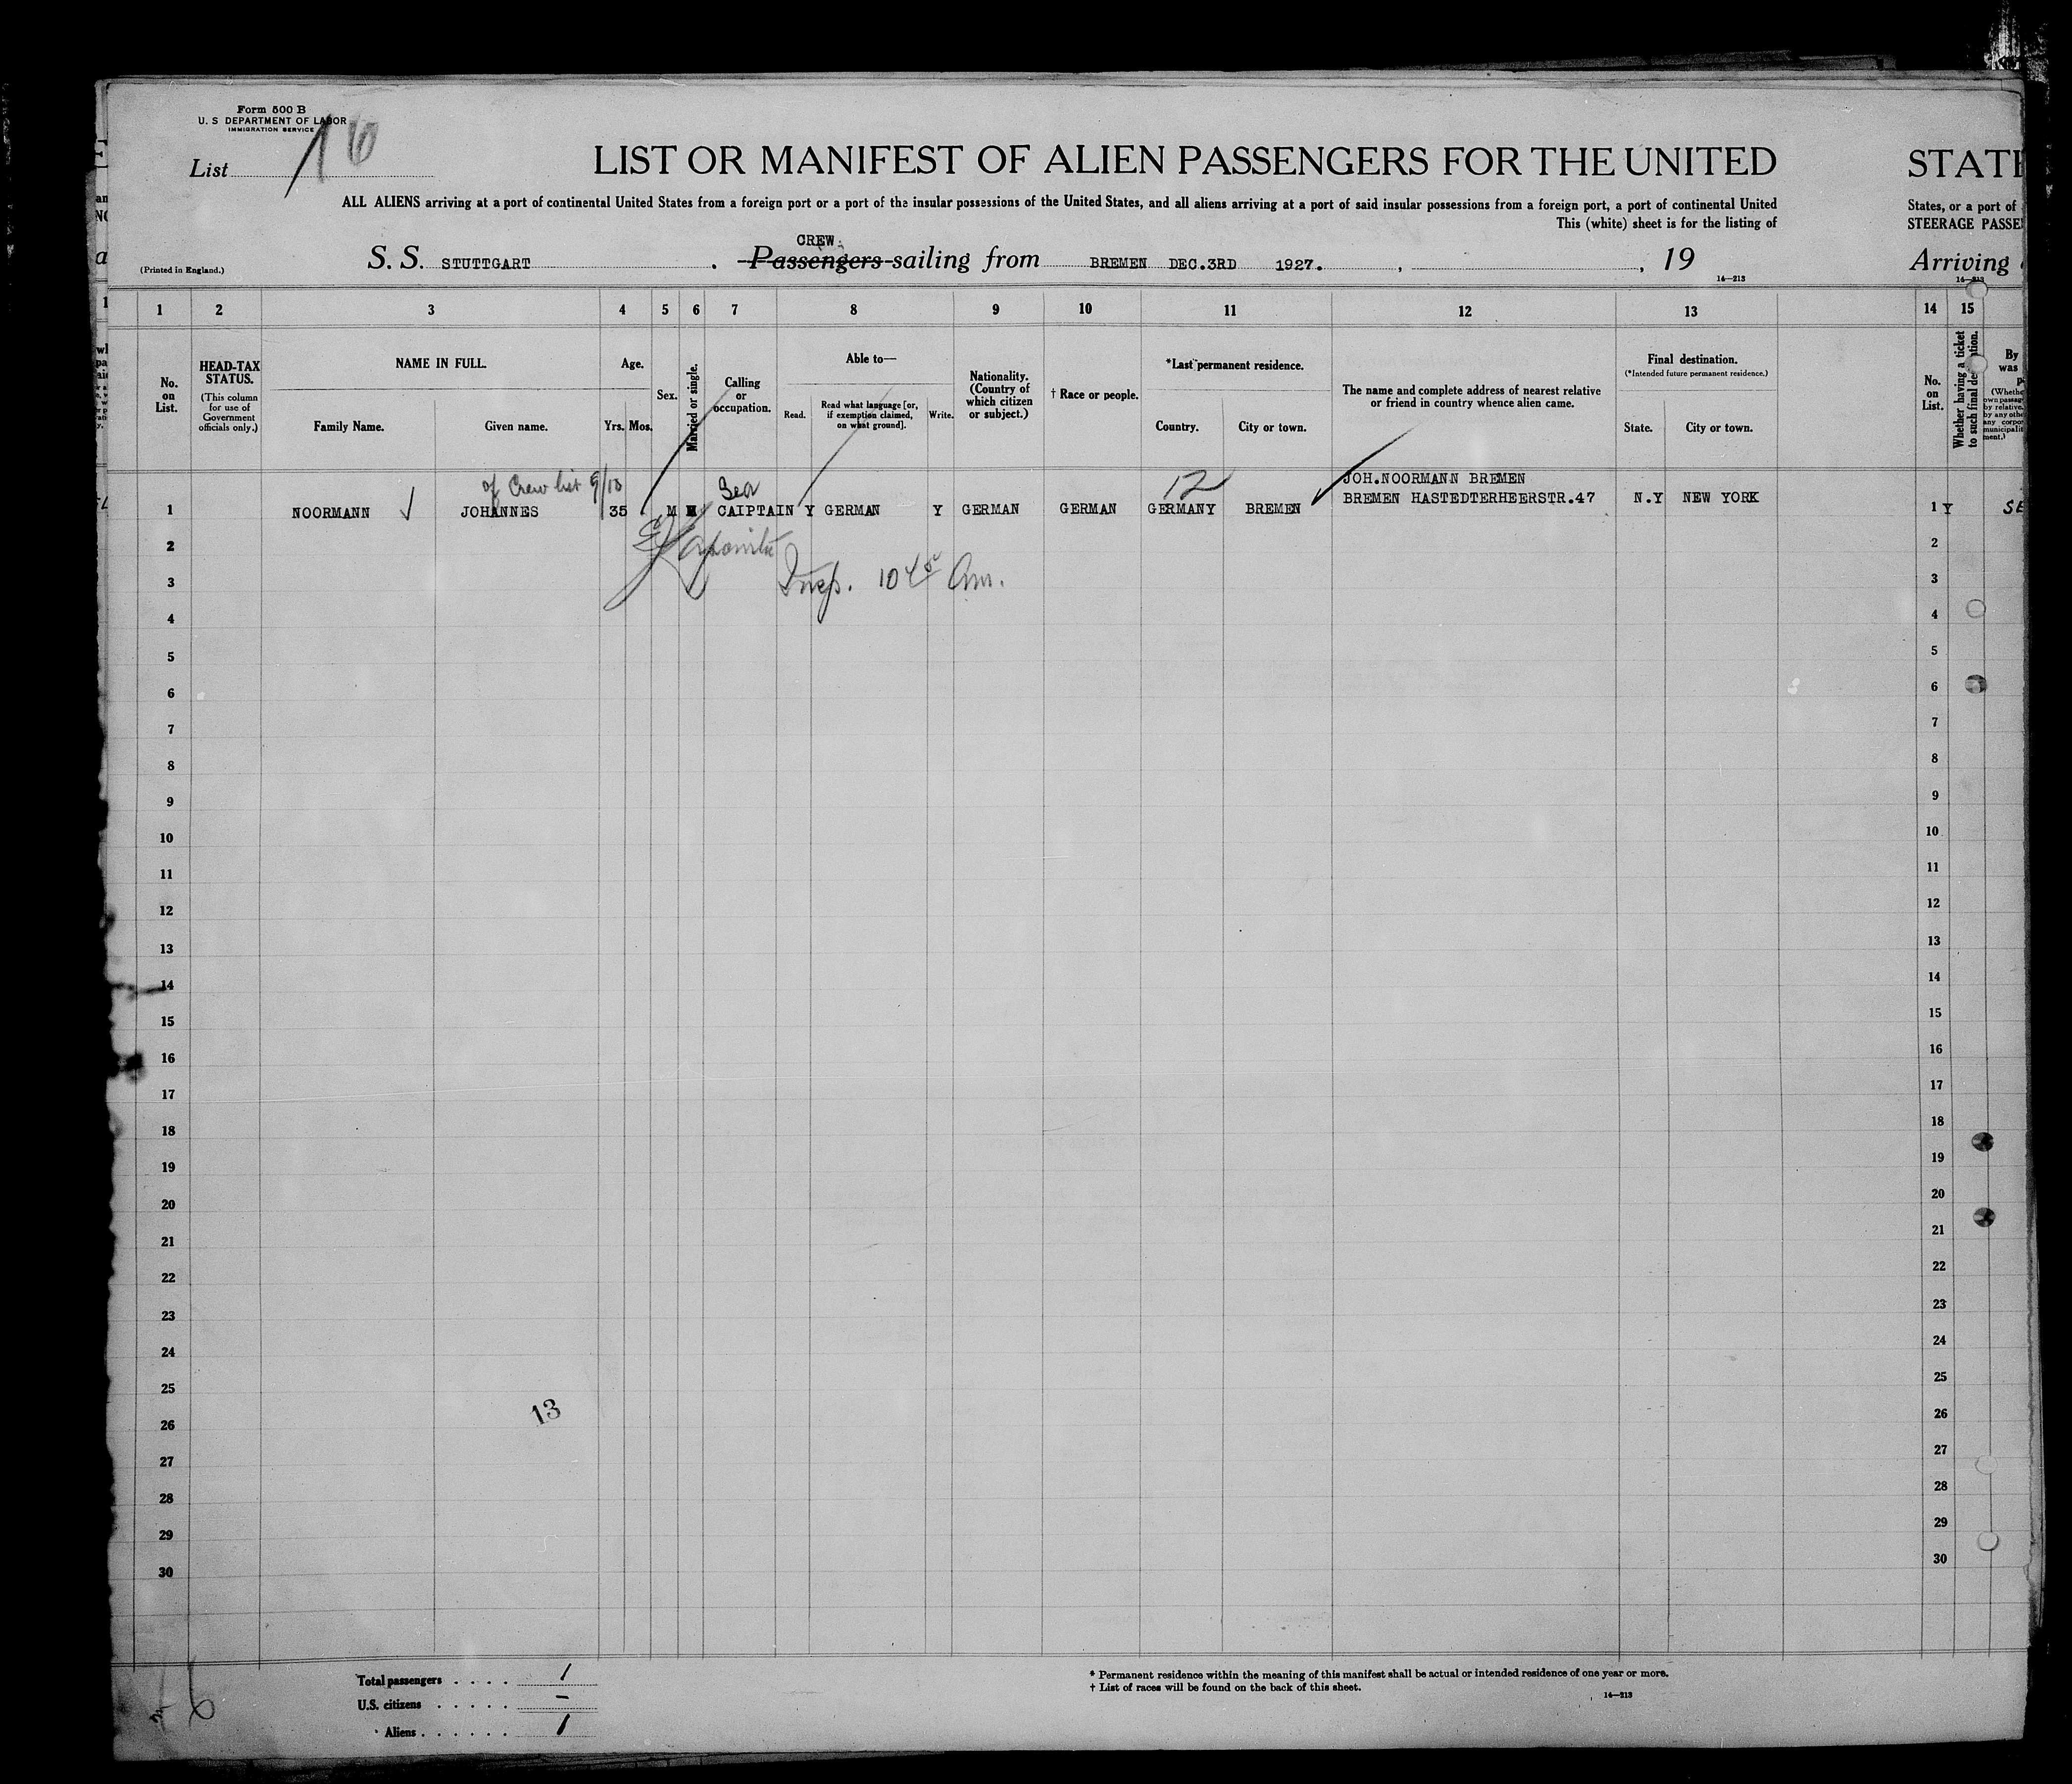 Form 500 B
U. S DEPARTMENT OF LABOR
IMMIGRATION SERVICE
List 16
LIST OR MANIFEST OF ALIEN PASSENGERS FOR THE UNITED STATE
ALL ALIENS arriving at a port of continental United States from a foreign port or a port of the insular possessions of the United States, and all aliens arriving at a port of said insular possessions from a foreign port, a port of continental United States, or a port of
This (white) sheet is for the listing of STEERAGE PASSE
CREW.
(Printed in England.) S. S. STUTTGART . Passengers sailing from BREMEN DEC.3RD 1927. , , 19 Arriving
14—213 14—213
1 2 3 4 5 6 7 8 9 10 11 12 13 14 15
No. on List.
HEAD-TAX STATUS.
(This column for use of Government officials only.)
NAME IN FULL.
Family Name. Given name.
Age.
Yrs. Mos.
Sex.
Married or single.
Calling or occupation.
Able to—
Read. Read what language [or, if exemption claimed, on what ground]. Write.
Nationality. (Country of which citizen or subject.)
† Race or people.
*Last permanent residence.
Country. City or town.
The name and complete address of nearest relative or friend in country whence alien came.
Final destination.
(*Intended future permanent residence.)
State. City or town.
No. on List.
Whether having a ticket to such final destination.
By
was
of Crew list 9/13 Sea 12 JOH.NOORMANN BREMEN
1 NOORMANN JOHANNES 35 M M CAIPTAIN Y GERMAN Y GERMAN GERMAN GERMANY BREMEN BREMEN HASTEDTERHEERSTR.47 N.Y NEW YORK 1 Y SE
2 2
Insp. 10 45 Am.
3 3
4 4
5 5
6 6
7 7
8 8
9 9
10 10
11 11
12 12
13 13
14 14
15 15
16 16
17 17
18 18
19 19
20 20
21 21
22 22
23 23
24 24
25 25
13
26 26
27 27
28 28
29 29
30 30
Total passengers . . . . 1
U.S. citizens . . . . . –
Aliens . . . . . . 1
* Permanent residence within the meaning of this manifest shall be actual or intended residence of one year or more.
† List of races will be found on the back of this sheet.
14—213